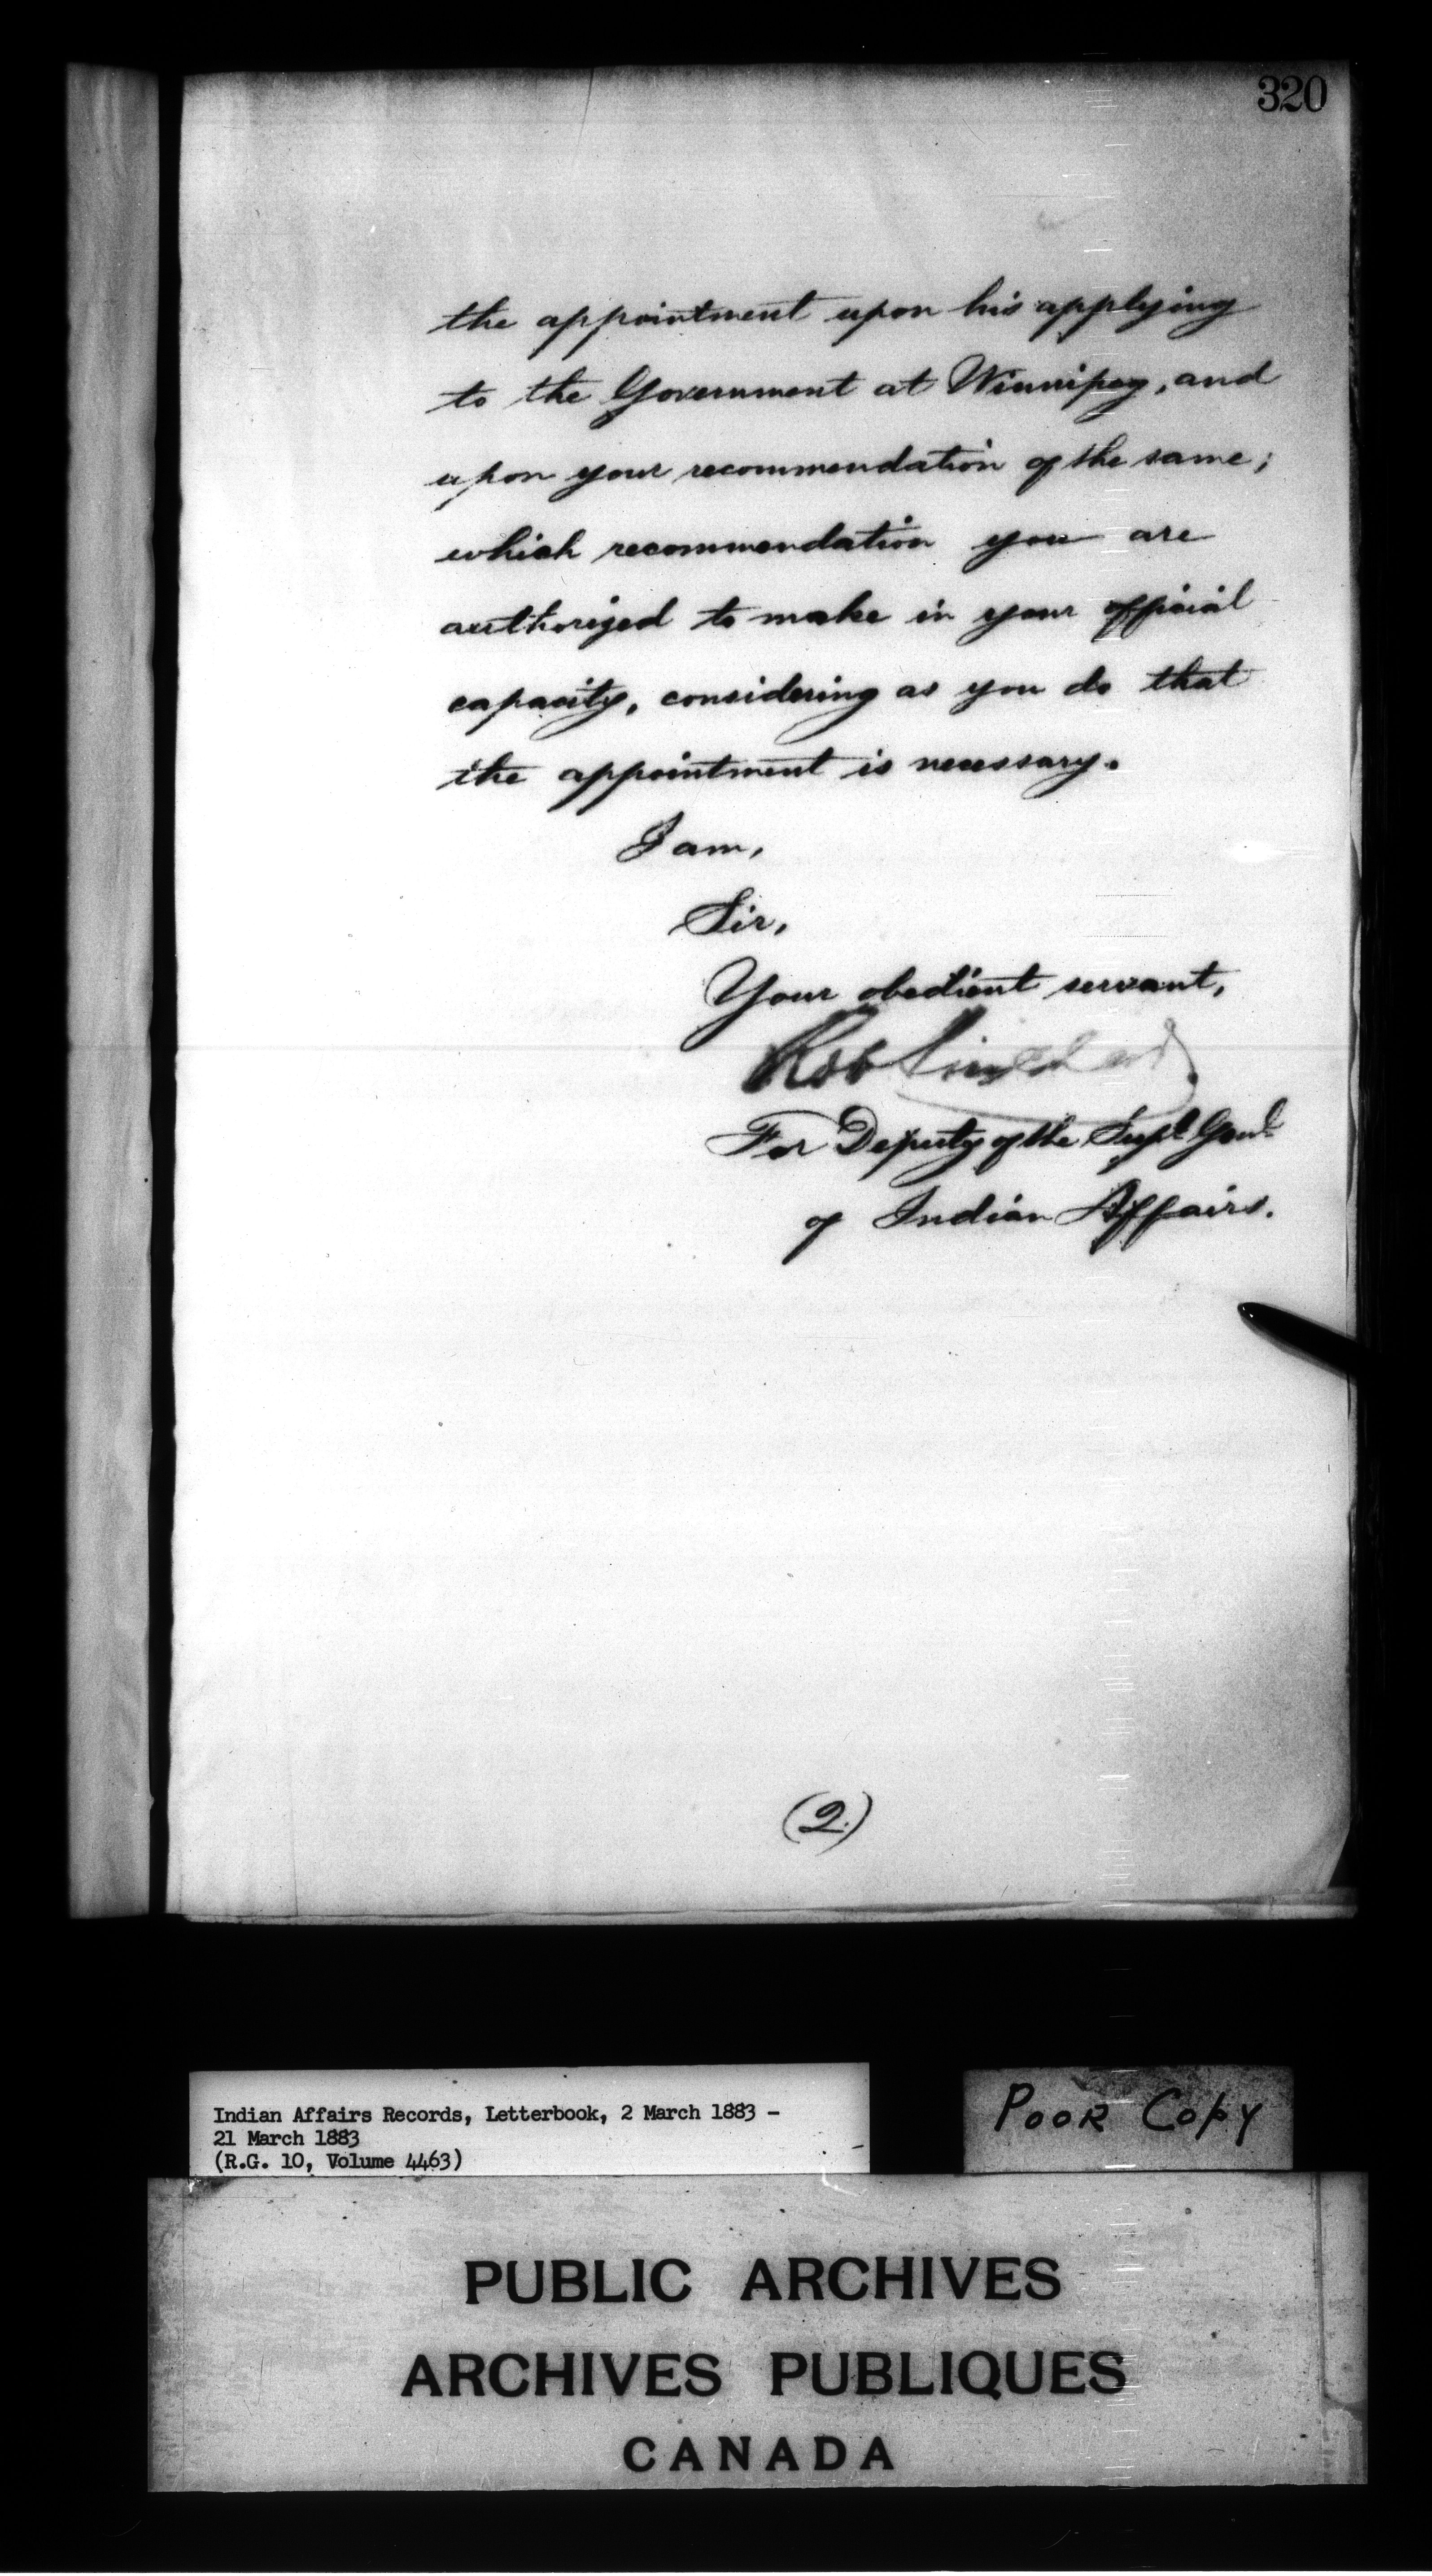 320
the appointment upon his applying
to the Government at Winnipeg, and
upon your recommendation of the same;
which recommendation you are
authorized to make in your official
capacity, considering as you do that
the appointment is necessary.
I am,
Sir,
Your obedient servant,
Rob Sinclair
For Deputy of the Supt. Genl.
of Indian Affairs.
(2.)
Indian Affairs Records, Letterbook, 2 March 1883 -
21 March 1883
(R.G. 10, Volume 4463)
POOR COPY
PUBLIC ARCHIVES
ARCHIVES PUBLIQUES
CANADA